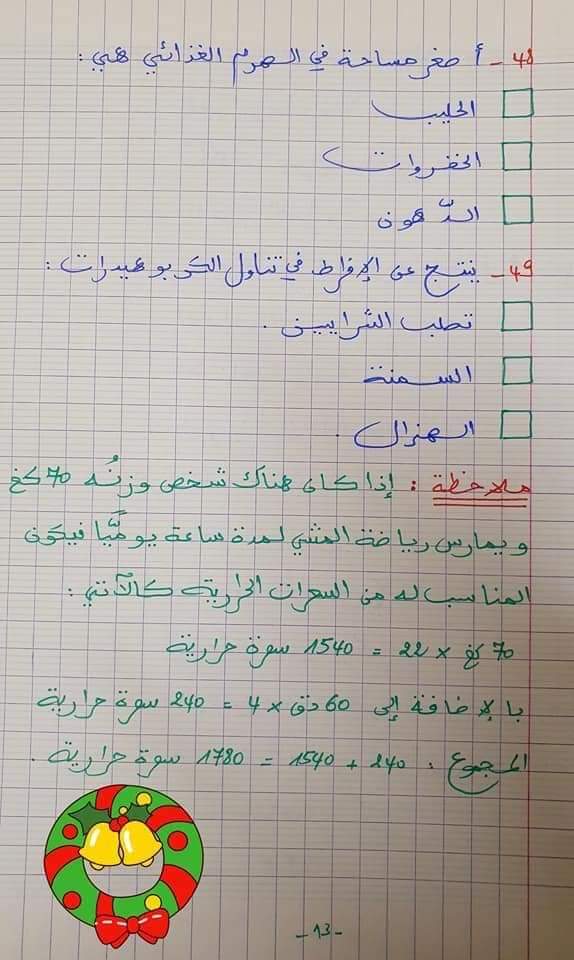 48 - أصغر مساحة في الهرم الغذائي هي :
الحليب
الخضروات
الدّهون
49 - ينتج عن الإفراط في تناول الكربوهيدرات :
تصلب الشّرايين .
السمنة
الهزال .
ملاحظة : إذا كان هناك شخص وزنُه 70 كغ
و يمارس رياضة المشي لمدة ساعة يوميًّا فيكون
المناسب له من السعرات الحرارية كالآتي :
70 كغ × 22 = 1540 سعرة حرارية
بالإضافة إلى 60 دق × 4 = 240 سعرة حرارية
المجموع : 240 + 1540 = 1780 سعرة حرارية .
- 13 -